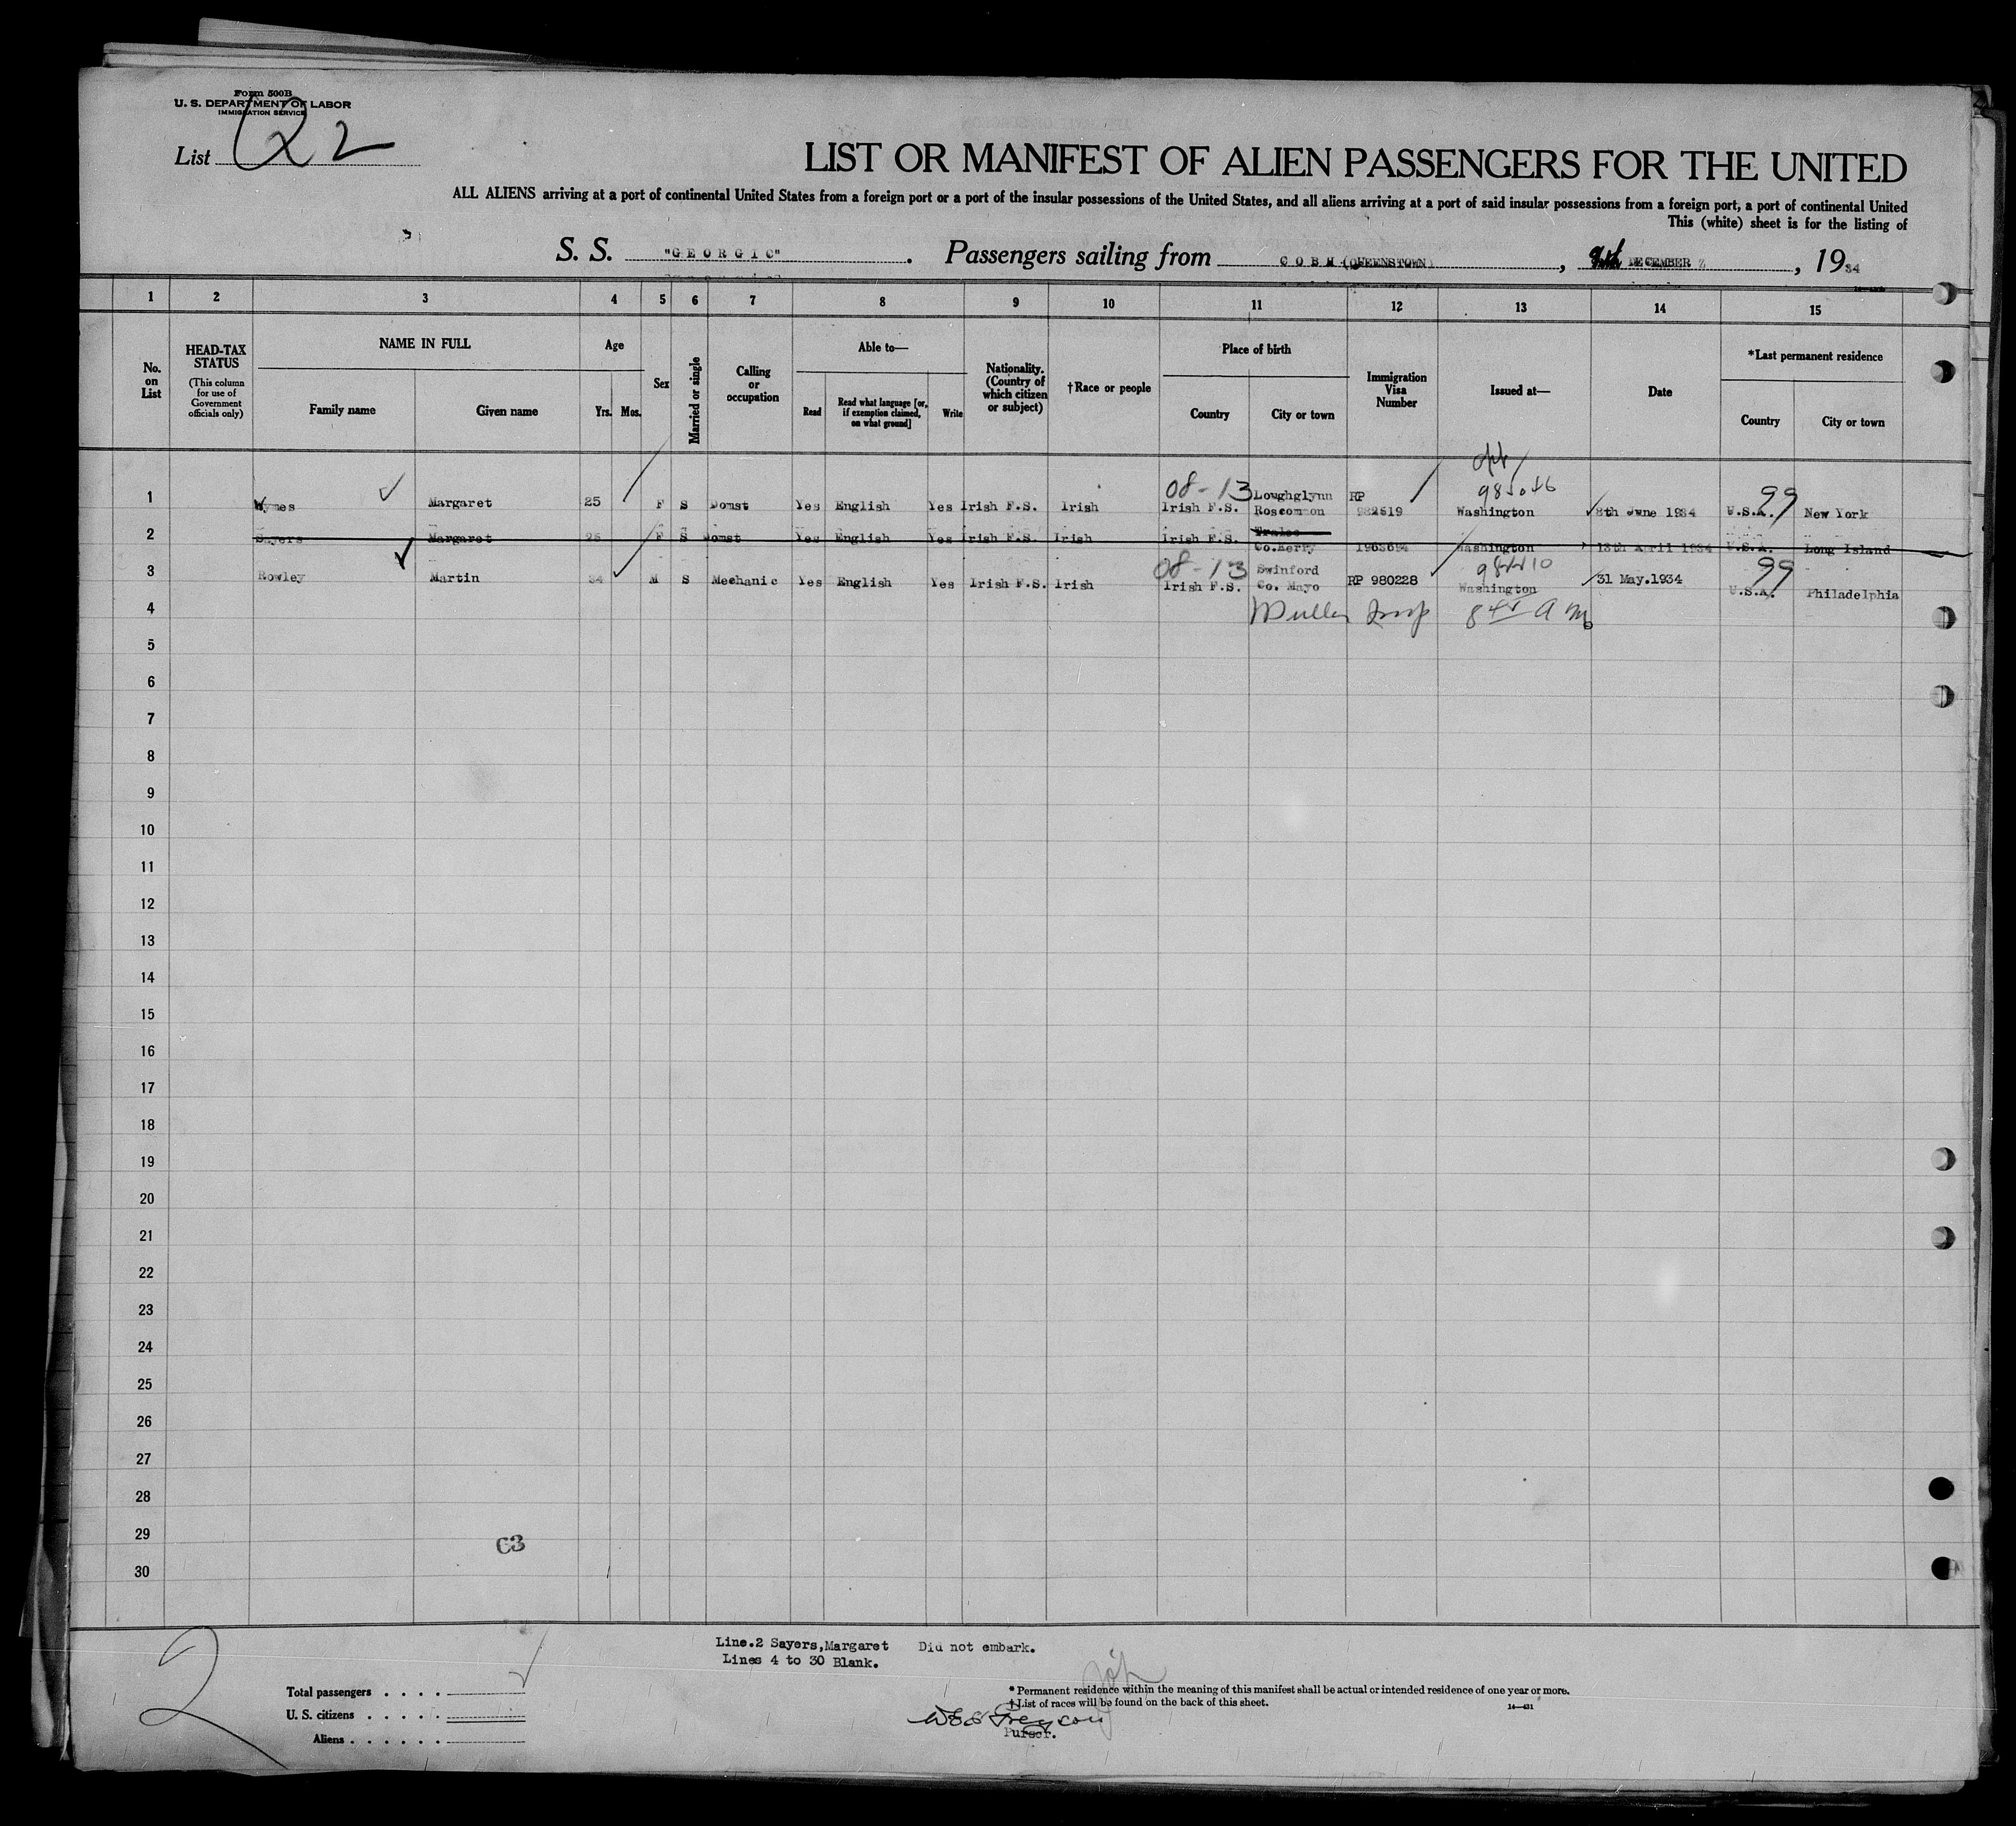 Form 500B
U. S. DEPARTMENT OF LABOR
IMMIGRATION SERVICE
List 2
LIST OR MANIFEST OF ALIEN PASSENGERS FOR THE UNITED
ALL ALIENS arriving at a port of continental United States from a foreign port or a port of the insular possessions of the United States, and all aliens arriving at a port of said insular possessions from a foreign port, a port of continental United
This (white) sheet is for the listing of
S. S. "GEORGIC". Passengers sailing from COBH (QUEENSTOWN), DECEMBER, 1934
1 2 3 4 5 6 7 8 9 10 11 12 13 14 15
No. on List
HEAD-TAX STATUS
(This column for use of Government officials only)
NAME IN FULL
Family name Given name
Age
Yrs. Mos.
Sex
Married or single
Calling or occupation
Able to—
Read Read what language [or, if exemption claimed, on what ground] Write
Nationality. (Country of which citizen or subject)
†Race or people
Place of birth
Country City or town
Immigration Visa Number
Issued at—
Date
*Last permanent residence
Country City or town
08-13 985046 99
1 Wymes Margaret 25 F S Domst Yes English Yes Irish F.S. Irish Irish F.S. Loughglynn Roscommon RP 982619 Washington 8th June 1934 U.S.A. New York
2 Sayers Margaret 26 F S Domst Yes English Yes Irish F.S. Irish Irish F.S. Tralee Co.Kerry 1963694 Washington 13th April 1934 U.S.A. Long Island
08-13 99
3 Rowley Martin 34 M S Mechanic Yes English Yes Irish F.S. Irish Irish F.S. Swinford Co. Mayo RP 980228 Washington 31 May.1934 U.S.A. Philadelphia
4 Insp 845 AM
5
6
7
8
9
10
11
12
13
14
15
16
17
18
19
20
21
22
23
24
25
26
27
28
29
C3
30
Line.2 Sayers,Margaret Did not embark.
Lines 4 to 30 Blank.
2
Total passengers . . . .
U. S. citizens . . . . .
Aliens . . . . . .
* Permanent residence within the meaning of this manifest shall be actual or intended residence of one year or more.
† List of races will be found on the back of this sheet.
14—431
Purser.